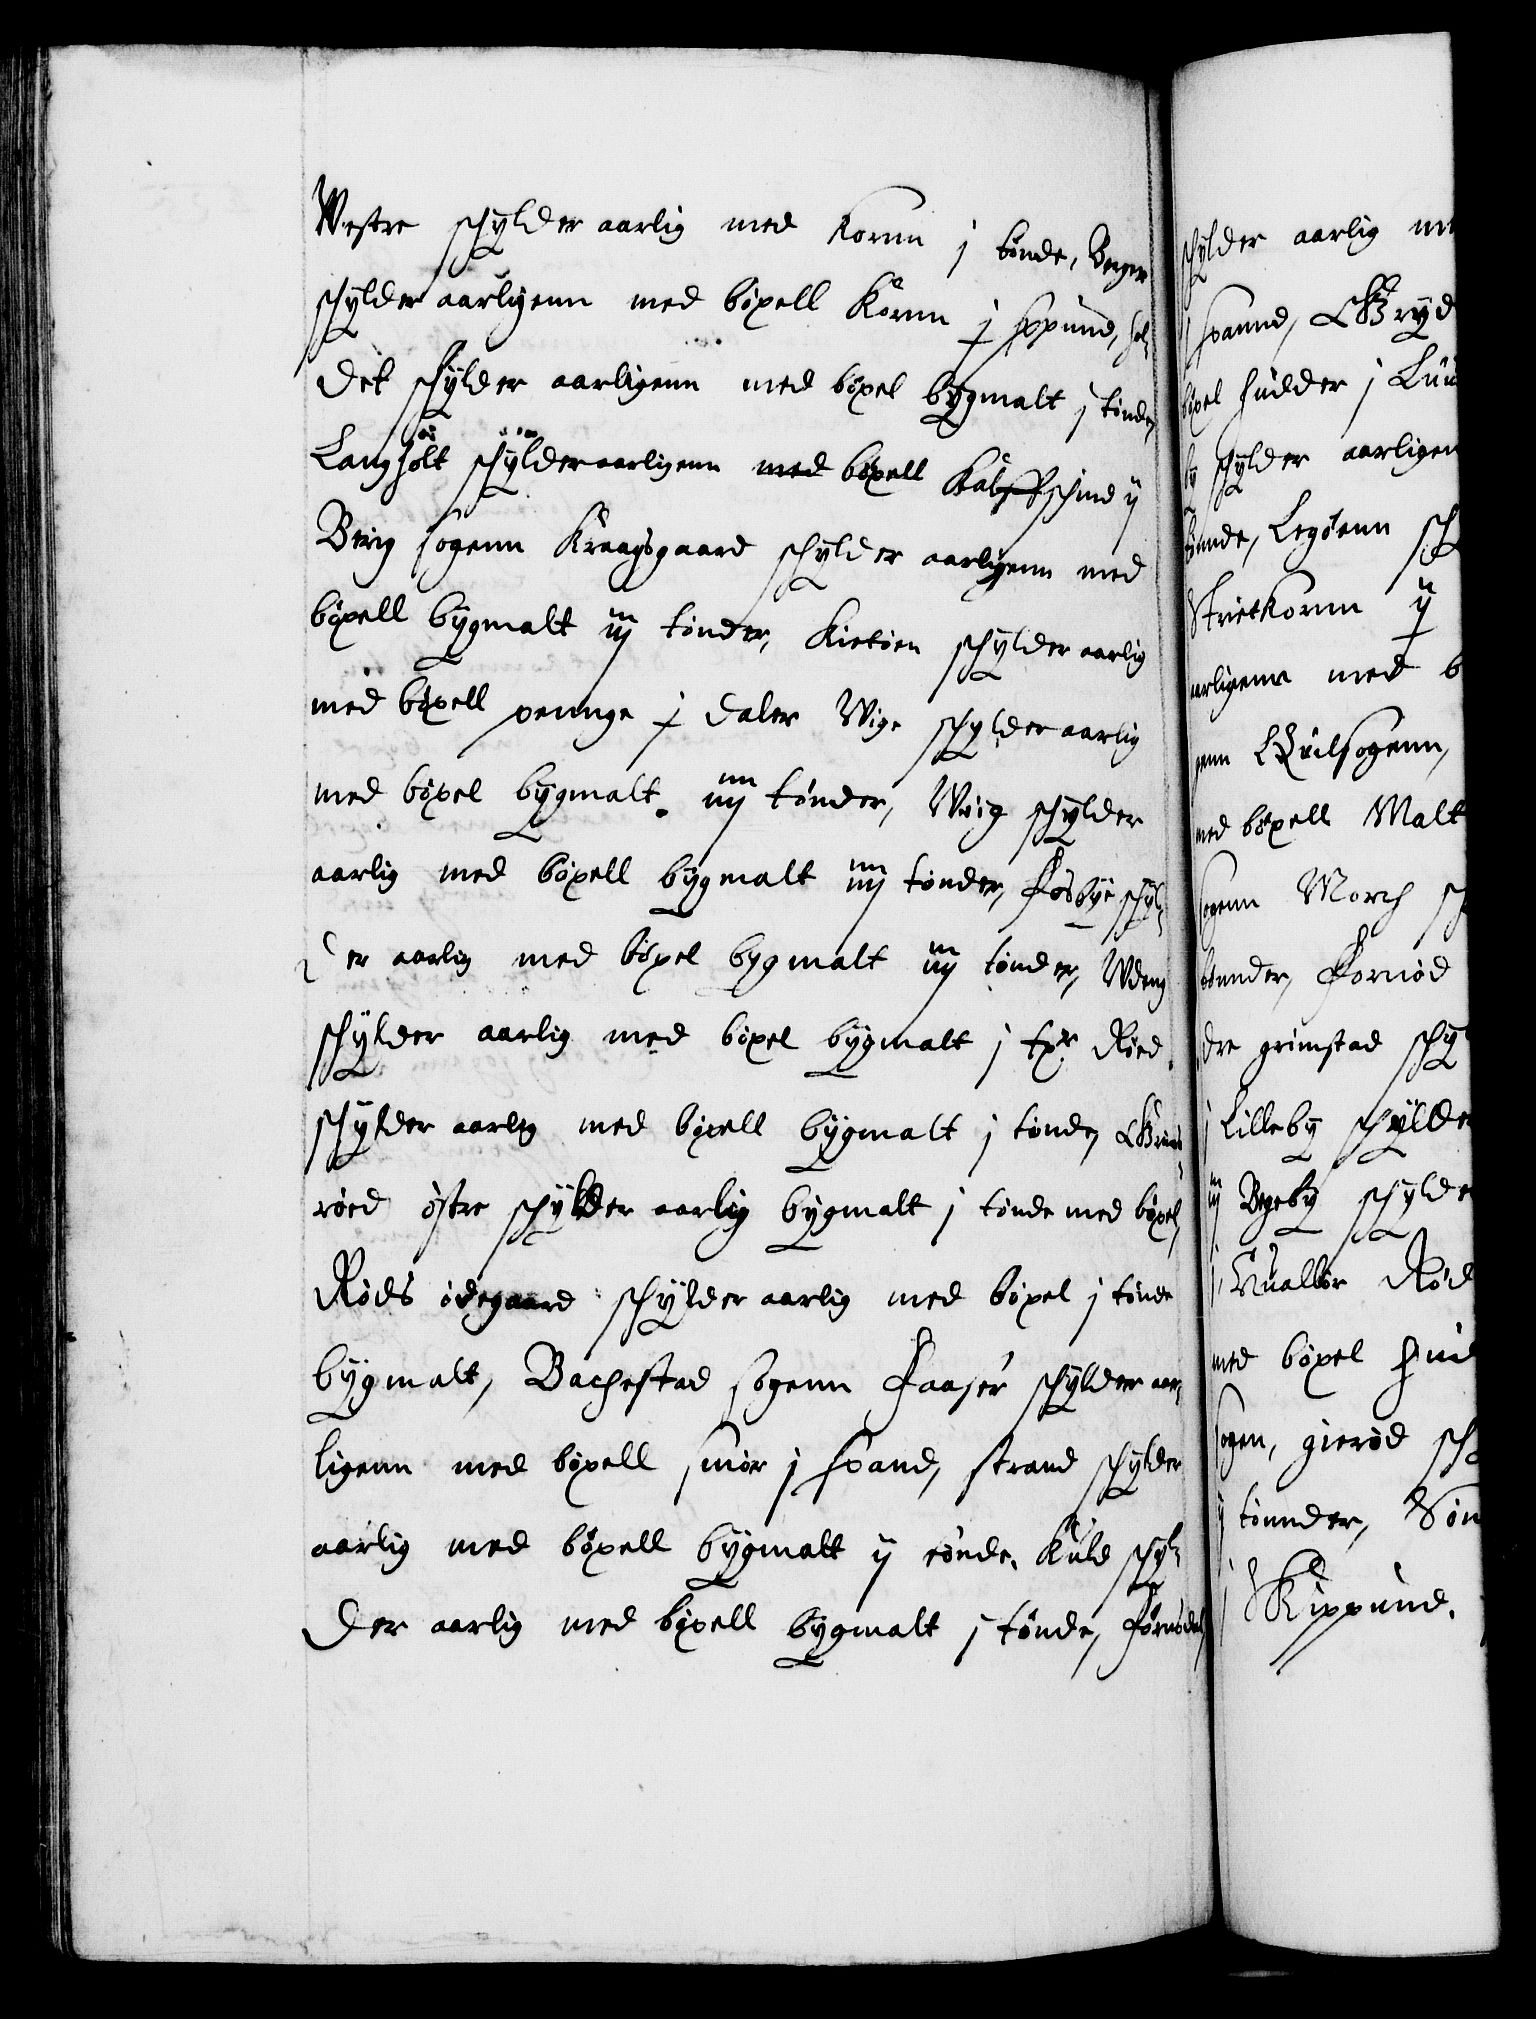 Westre schylder aarlig med Kornn j tønde, Berger
schylder aarligenn med böxell Kornn j sxpund, hol¬
det schylder aarligenn med böxel bygmalt j tønde,
Langholt schylder aarligenn med böxell Kalffschind ij
Berig sogenn Kraagsgaard schylder aarligenn med
böxell bygmalt iij tønder, Kietøen schylder aarlig
med böxell pennge j daler Wige schylder aarlig
med böxel bygmalt iiij tønder, Wiig schylder
aarlig med böxell bygmalt iiij tønder, Fosbye schyl¬
der aarlig med böxel bygmalt iij tønder, Wdeng
schylder aarlig med böxel bygmalt j txr Røed
schylder aarlig med böxell bygmalt j tønde,
røed østre schylder aarlig bygmalt j tønde med böxel,
Røds ødegaard schylder aarlig med böxel j tønde
bygmalt, Bachestad sogenn Faaser schylder aar¬
ligenn med böxell smør j spand, strand schylder
aarlig med böxell bygmalt ij tønde, Kuld schyl¬
der aarlig med böxell bygmalt j tønde,
schylder aarlig
spannd,
böxel hudder j
by schylder aarligen
tønde, Legøenn sch
Strietkornn ij
arligenn med b
genn Quilsogenn,
med böxell Malt
sogenn Morch sch
tønnder, Fornød
dre grimstad schyl
j Lilleby schylde
iij Begeby schylde
j Hualler Rød
med böxel hud
sogen, gierød sch
tønnder, Søn
j Skippund.